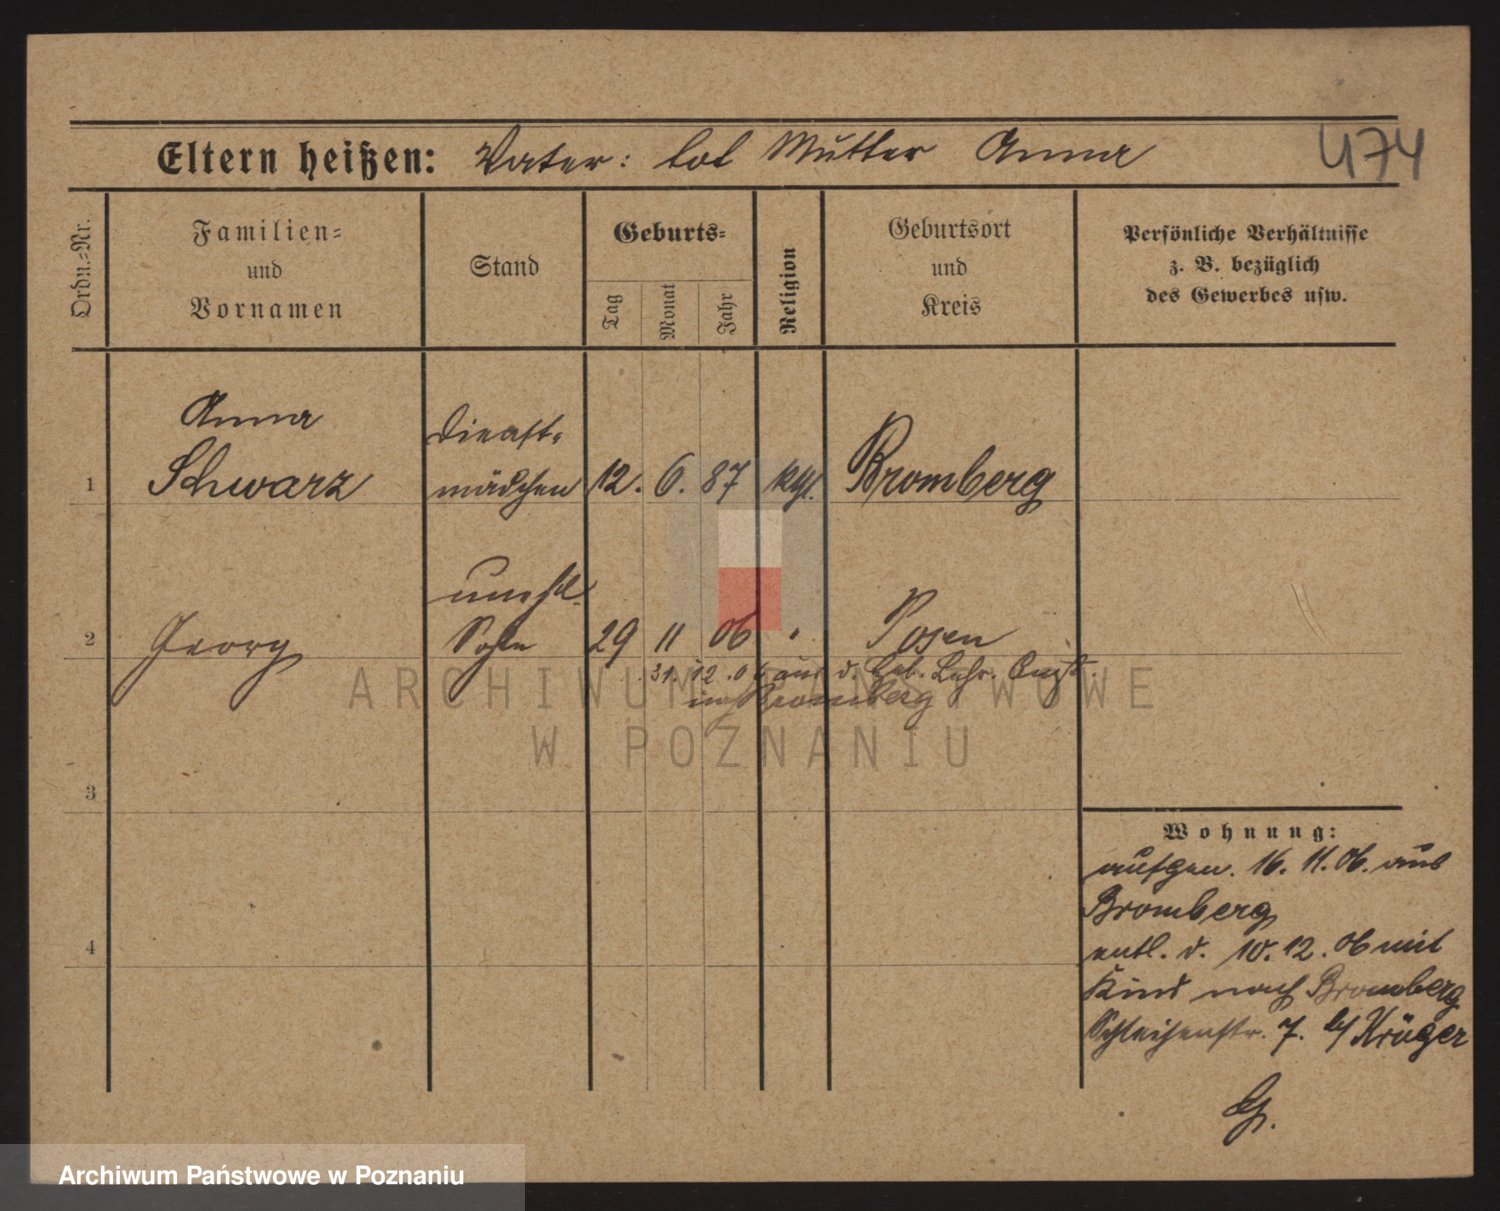 474
Eltern heißen: Vater: tot Mutter Anna
Ordn.=Nr.
Familien=
und
Vornamen
Stand
Geburts=
Tag
Monat
Jahr
Religion
Geburtsort
und
Kreis
Persönliche Verhältnisse
z. B. bezüglich
des Gewerbes usw.
Anna Dienst-
1 Schwarz mädchen 12. 6. 87 kgl. Bromberg
unehl.
2 Georg Sohn 29 11 06 " Posen
31. 12. 06 aus d. Lehr. Anst.
in Bromberg
3
4
Wohnung:
aufgen. 16. 11. 06. aus
Bromberg
entl. d. 10. 12. 06 mit
Kind nach Bromberg
7. b/ Krüger
ARCHIWUM PAŃSTWOWE
W POZNANIU
Archiwum Państwowe w Poznaniu